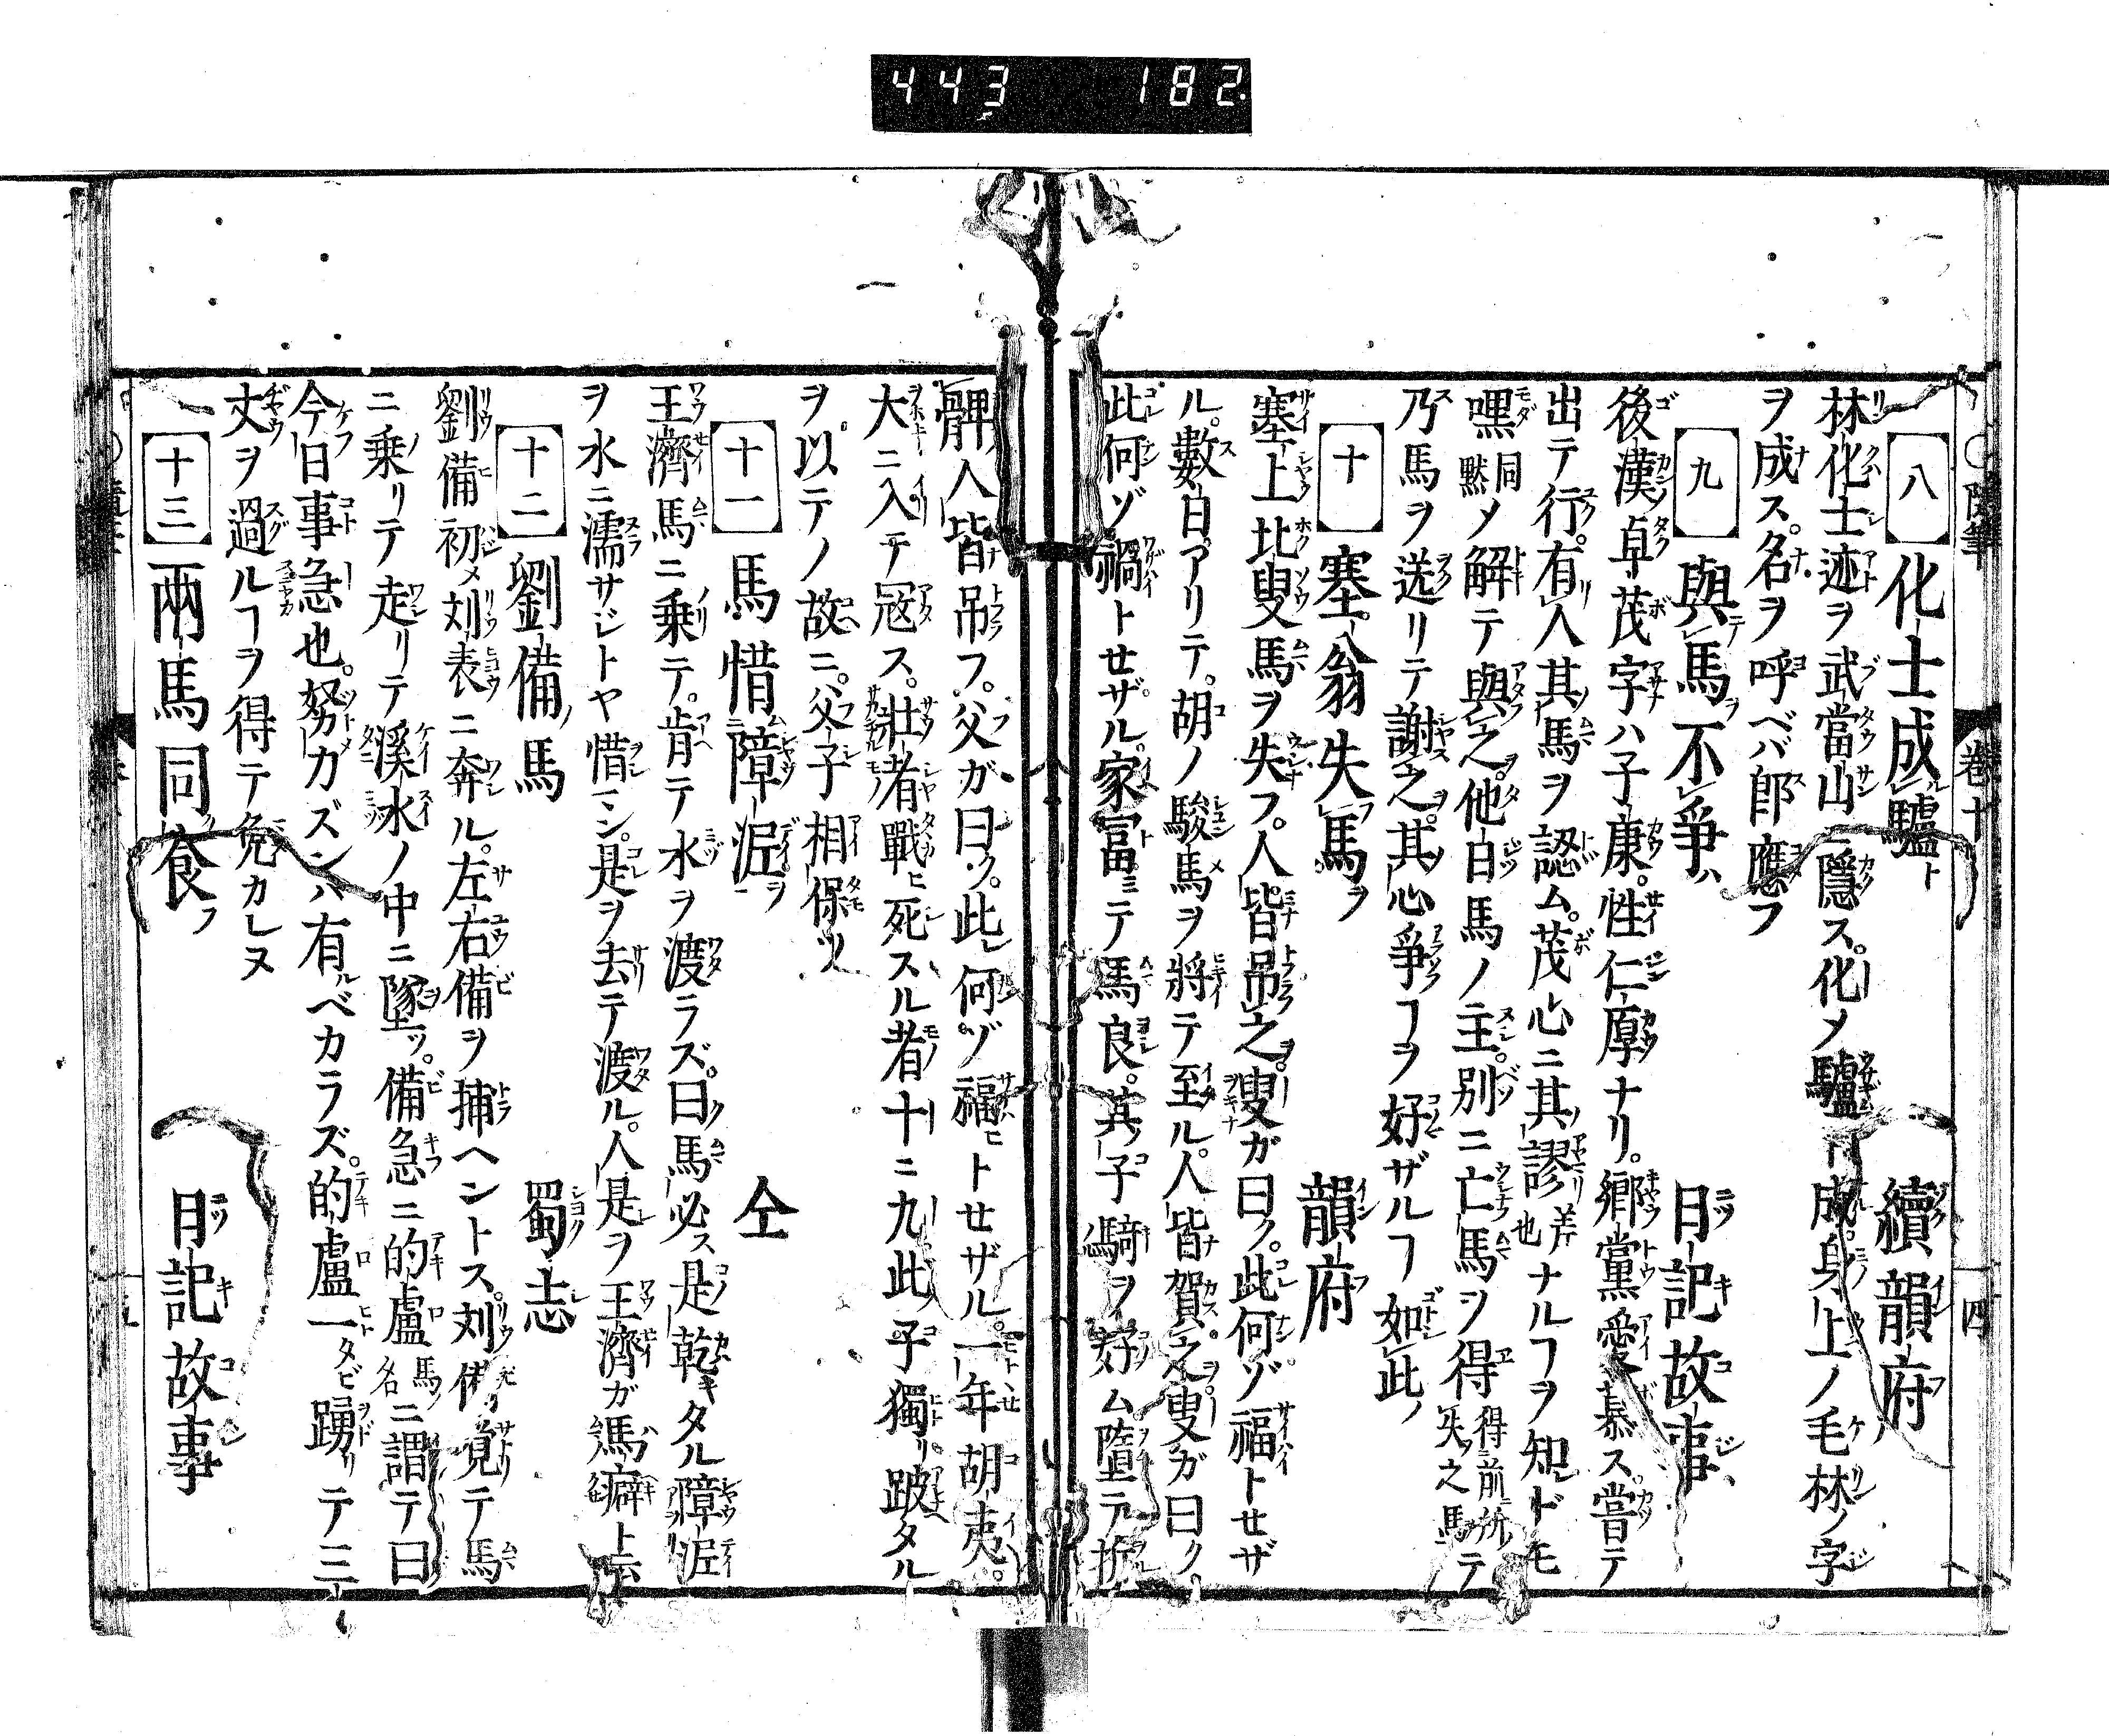 443 182
八 化士成驢ト 續韻府
林化士迹ヲ武當山ニ隱ス。化メ驢ト成。身上ノ毛林ノ字
ヲ成ス。名ヲ呼ベバ即應フ
九 與馬不爭ハ 日記故事
後漢卓茂字ハ子康。性仁厚ナリ。郷黨愛慕ス。嘗テ
出テ行。有人其馬ヲ認ム。茂心ニ其謬差也ナルヿヲ知レドモ
嘿同黙メ解テ與之。他日馬ノ主。別ニ亡馬ヲ得得前所失之馬テ
乃馬ヲ送リテ謝之。其心爭ヿヲ好ザルヿ如此ノ
十 塞翁失馬ヲ 韻府
塞上北叟馬ヲ失フ。人皆吊之。叟ガ曰ク。此何ゾ福トセザ
ル。數日アリテ。胡ノ駿馬ヲ將テ至ル。人皆賀之叟ガ曰ク。
此何ゾ禍トセザル。家冨ミテ馬良。其子騎ヲ好ム墮テ折
髀人皆吊フ。父ガ曰ク。此レ何ゾ福ヒトセザル。一年胡夷。
大ニ入テ冦ス。壮者戰ヒ死スル者十ニ九此子獨リ跛タル
ヲ以テノ故ニ。父子相保ツ
十一 馬惜障泥ヲ 仝
王濟馬ニ乗テ。肯テ水ヲ渡ラズ。曰ク馬必ス是乾キタル障泥
ヲ水ニ濡サジトヤ惜ミシ。是ヲ去テ渡ル。人是ヲ王濟ガ馬癖ト云
十二 劉備ノ馬 蜀志
劉備初メ刘表ニ奔ル。左右備ヲ捕ヘントス。刘備覚テ馬
ニ乗リテ走リテ溪水ノ中ニ墜ツ。備急ニ的盧馬ノ名ニ謂テ曰
今日事急也。努カズンバ有ルベカラズ。的盧一タビ踴リテ三
丈ヲ過ルヿヲ得テ免カレヌ
十三 兩馬同食フ 日記故事
巻十
四